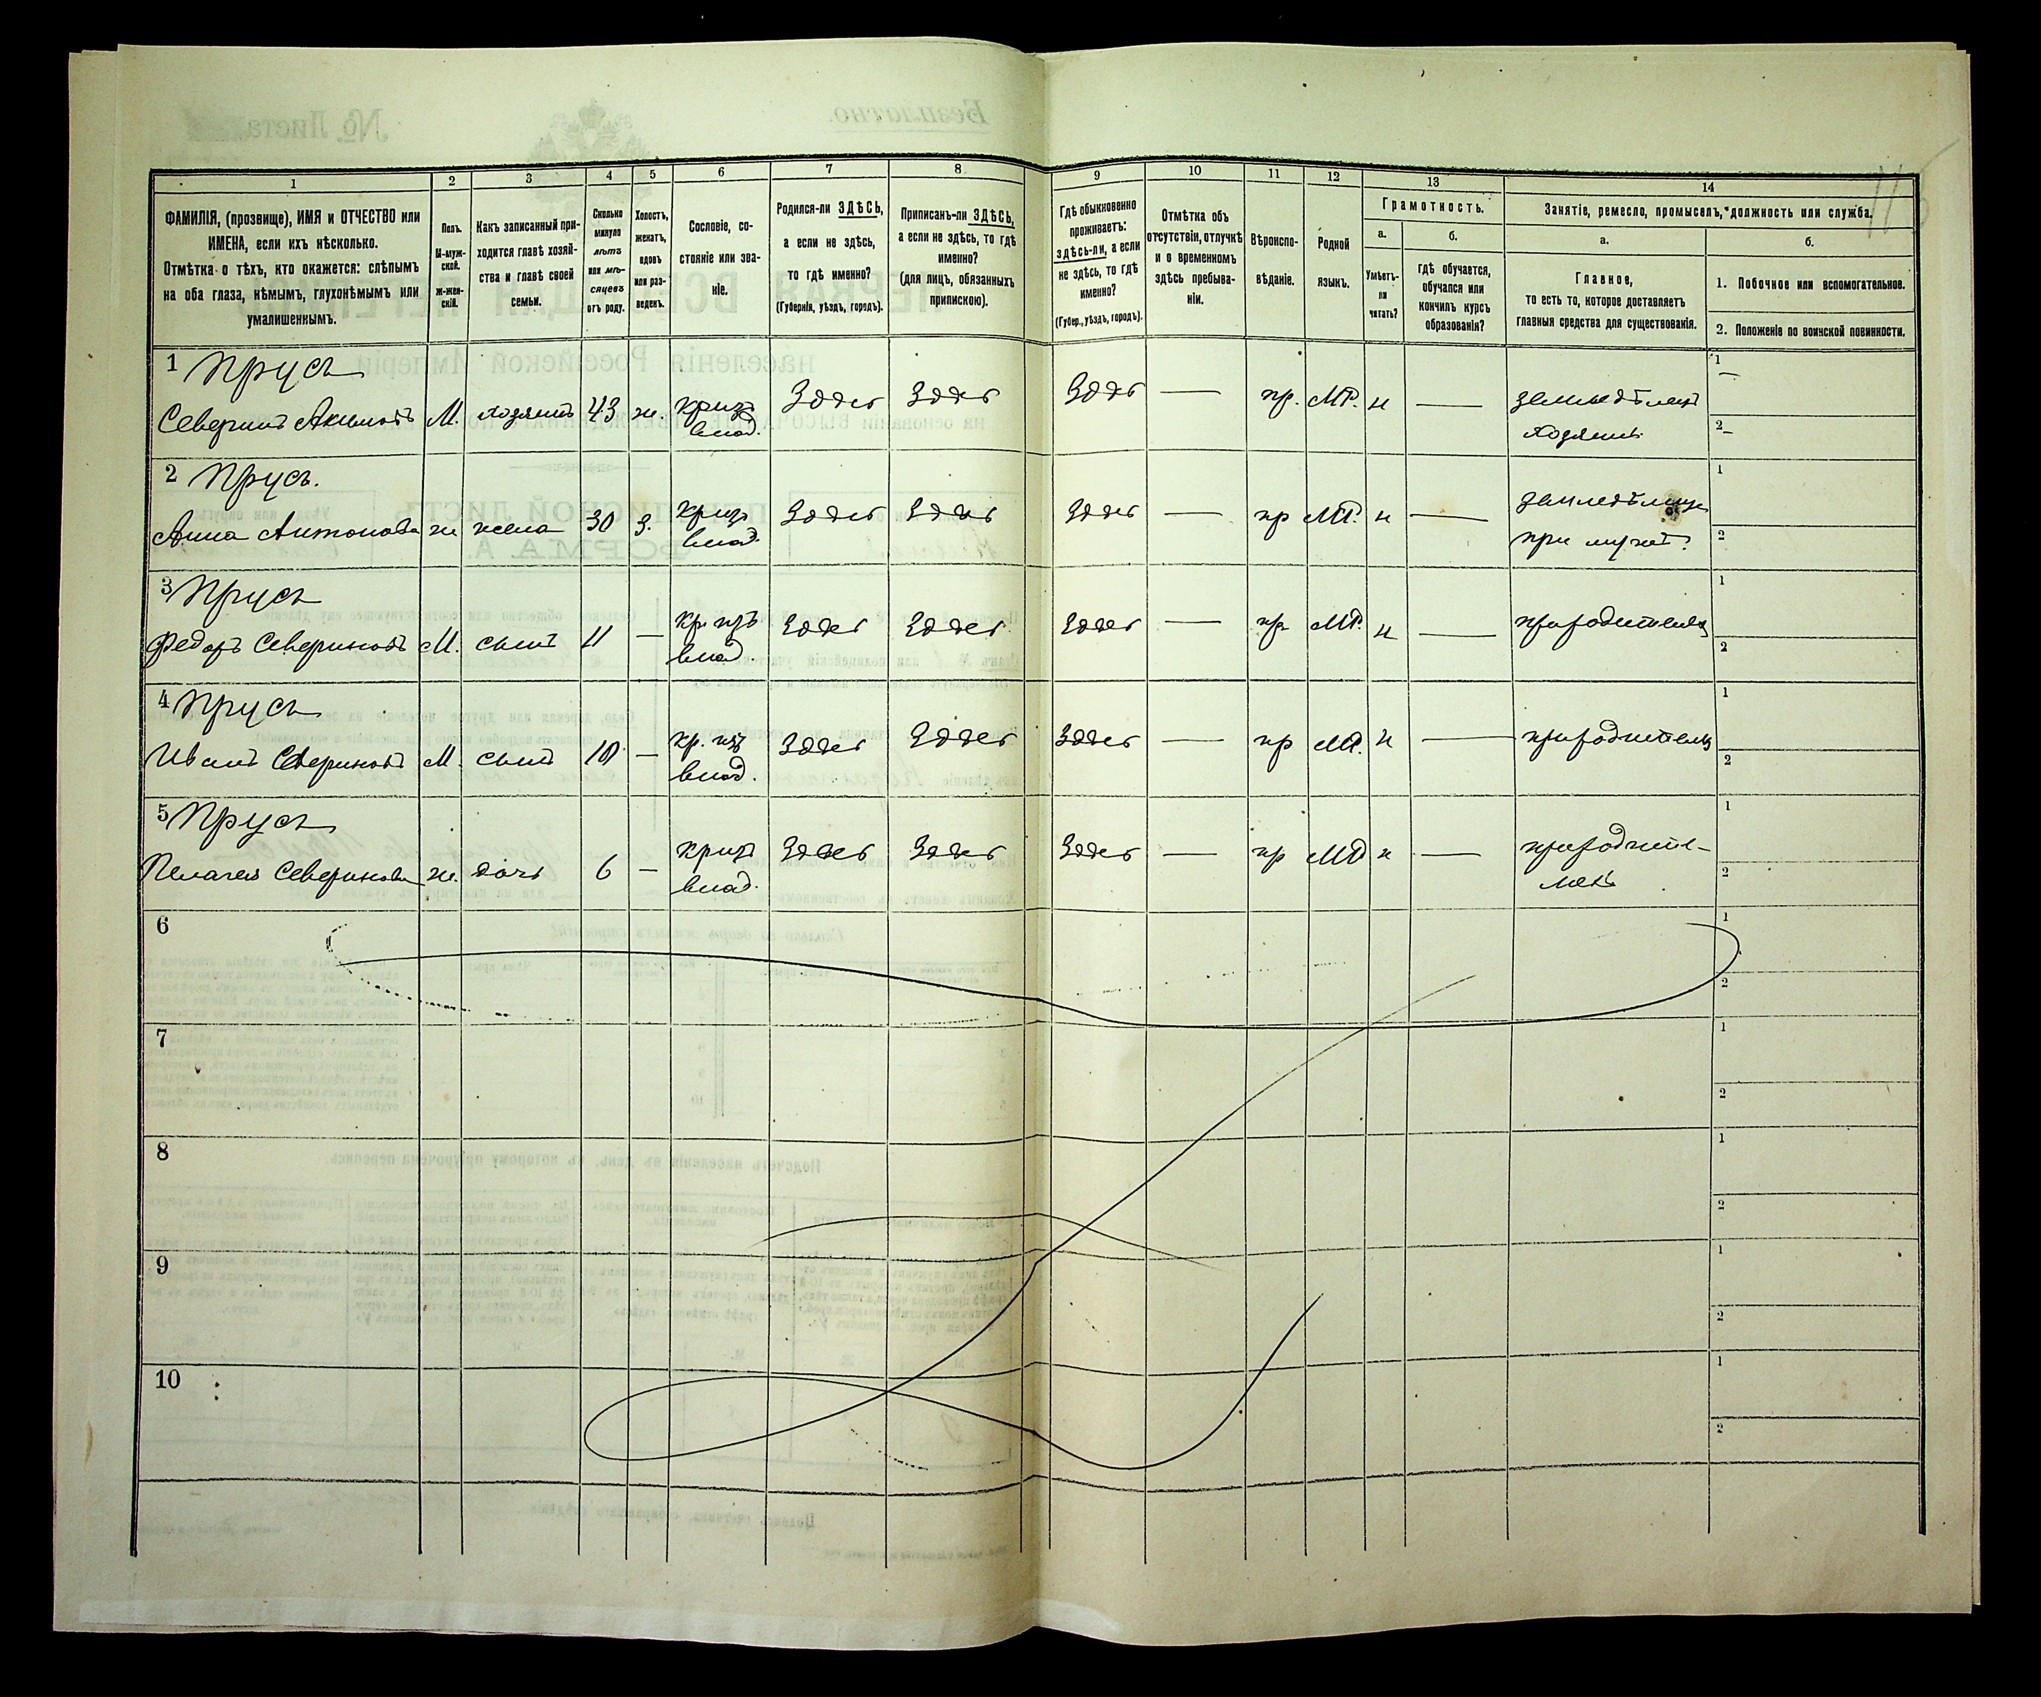 1
ФАМИЛІЯ, (прозвище), ИМЯ и ОТЧЕСТВО или
ИМЕНА, если ихъ нѣсколько.
Отмѣтка о тѣхъ, кто окажется: слѣпымъ
на оба глаза, нѣмымъ, глухонѣмымъ или
умалишеннымъ.
2
Полъ.
М-муж-
ской.
ж-жен-
скій.
3
Какъ записанный при-
ходится главѣ хозяй-
ства и главѣ своей
семьи.
4
Сколько
минуло
лѣтъ
или мѣ-
сяцевъ
отъ роду.
5
Холостъ,
женатъ,
вдовъ
или раз-
веденъ.
6
Сословіе, со-
стояніе или зва-
ніе.
7
Родился-ли ЗДѢСЬ,
а если не здѣсь,
то гдѣ именно?
(Губернія, уѣздъ, городъ).
8
Приписанъ-ли ЗДѢСЬ,
а если не здѣсь, то гдѣ
именно?
(для лицъ, обязанныхъ
припискою).
9
Гдѣ обыкновенно
проживаетъ:
здѣсь-ли, а если
не здѣсь, то гдѣ
именно?
(Губер., уѣздъ, городъ).
10
Отмѣтка объ
отсутствіи, отлучкѣ
и о временномъ
здѣсь пребыва-
ніи.
11
Вѣроиспо-
вѣданіе.
12
Родной
языкъ.
13
Грамотность.
а.
Умѣетъ-
ли
читать?
б.
гдѣ обучается,
обучался или
кончилъ курсъ
образованія?
14
Занятіе, ремесло, промыселъ, должность или служба.
а.
Главное,
то есть то, которое доставляетъ
главныя средства для существованія.
б.
1. Побочное или вспомогательное.
2. Положеніе по воинской повинности.
1 Прусъ
Северинъ Акимовъ М. хозяинъ 43 ж. кр. изъ Здесь Здесь Здесь — пр. МР. н — земледѣлецъ 1 —
влад. хозяинъ 2 —
2 Прусъ.
Анна Антонова ж жена 30 З. кр. изъ Здесь Здесь Здесь — пр МР. н — 1
влад. при мужѣ. 2
3 Прусъ
Федоръ Севериновъ М. сынъ 11 — кр. изъ Здесь Здесь Здесь — пр МР. н — 1
влад. 2
4 Прусъ
Иванъ Севериновъ М. сынъ 10 — кр. изъ Здесь Здесь Здесь — пр МР. н — 1
влад. 2
5 Прусъ
Пелагея Северинова ж. дочь 6 — кр. изъ Здесь Здесь Здесь — пр МР н — 1
влад. 2
6 1
2
7 1
2
8 1
2
9 1
2
10 1
2